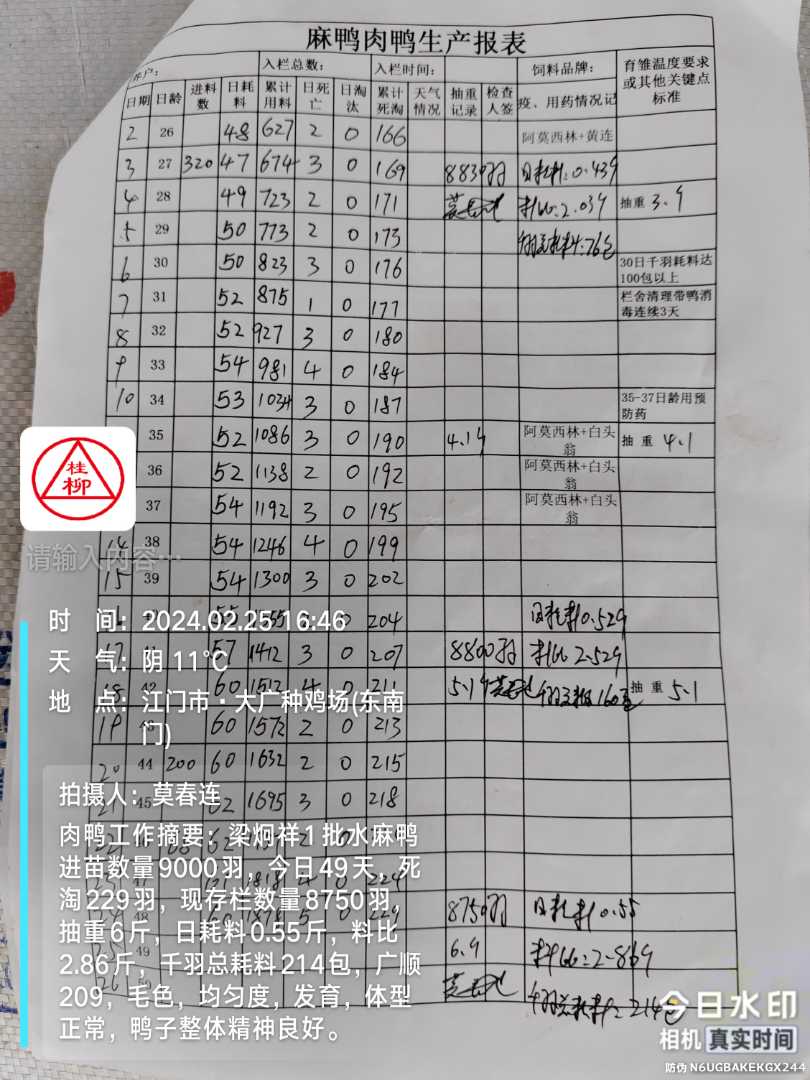 麻鸭肉鸭生产报表
入栏总数： 入栏时间： 饲料品牌： 育雏温度要求或其他关键点标准
日期 日龄 进料数 日耗料 累计用料 日死亡 日淘汰 累计死淘 天气情况 抽重记录 检查人签 疫、用药情况记
2 26 48 627 2 0 166 阿莫西林+黄连
3 27 320 47 674 3 0 169 8830羽 日耗料：0.43斤
4 28 49 723 2 0 171 料比：2.03斤 抽重 3.9
5 29 50 773 2 0 173
6 30 50 823 3 0 176 30日千羽耗料达100包以上
7 31 52 875 1 0 177 栏舍清理带鸭消毒连续3天
8 32 52 927 3 0 180
9 33 54 981 4 0 184
10 34 53 1034 3 0 187 35-37日龄用预防药
35 52 1086 3 0 190 4.1斤 阿莫西林+白头翁 抽重 4.1
36 52 1138 2 0 192 阿莫西林+白头翁
37 54 1192 3 0 195 阿莫西林+白头翁
14 38 54 1246 4 0 199
15 39 54 1300 3 0 202
204 日耗料0.52斤
57 1412 3 0 207 8800羽 料比 2.52斤
18 42 60 1512 4 0 211 5.1斤 抽重 5.1
19 43 60 1572 2 0 213
20 44 200 60 1632 2 0 215
45 62 1695 3 0 218
48 60 1878 5 0 229 8750羽 日耗料0.55
49 6.斤 料比：2.86斤
桂柳
请输入内容…
时 间：2024.02.25 16:46
天 气：阴 11℃
地 点：江门市·大广种鸡场(东南门)
拍摄人：莫春连
肉鸭工作摘要：梁炯祥1批水麻鸭
进苗数量9000羽，今日49天，死
淘229羽，现存栏数量8750羽，
抽重6斤，日耗料0.55斤，料比
2.86斤，千羽总耗料214包，广顺
209，毛色，均匀度，发育，体型
正常，鸭子整体精神良好。
今日水印
相机 真实时间
防伪 N6UGBAKEKGX244